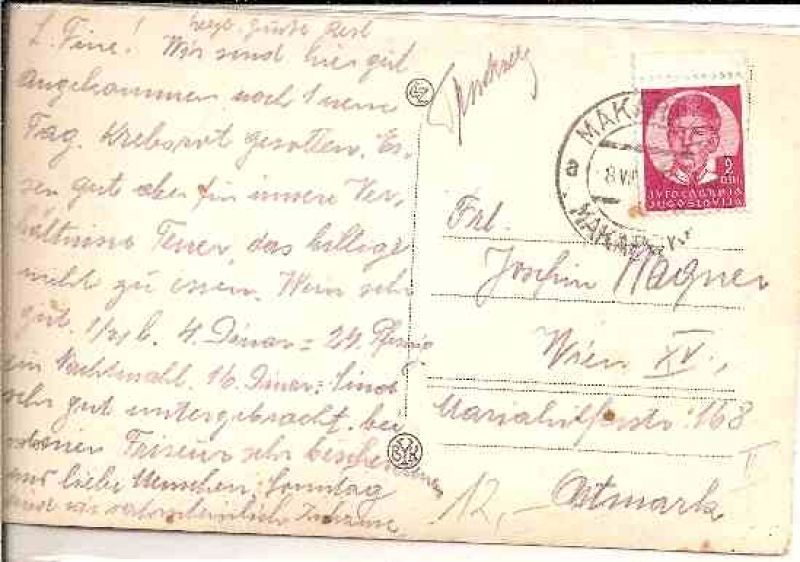 L. Fine! Wir sind hier gut
angekommen nach 1 nem
Tag. Krebsrot gesotten. Es-
sen gut aber für unsere Ver-
hältnisse Teuer, das billige
nicht zu essen. Wein sehr
gut. 4 Dinar = 24 Pfennig
ein Nachtmahl 16 Dinar: Sind
sehr gut untergebracht. bei
einen Friseur sehr bescheidene
und liebe Menschen. Sonntag
sind wir
MAKAR
8 VI
MAKARSKA
2
DIN.
ЈУГОСЛАВИЈА
JUGOSLAVIJA
Frl.
Joschin Wagner
Wien XV.,
Mariahilferstr. 168
Ostmark
12,-